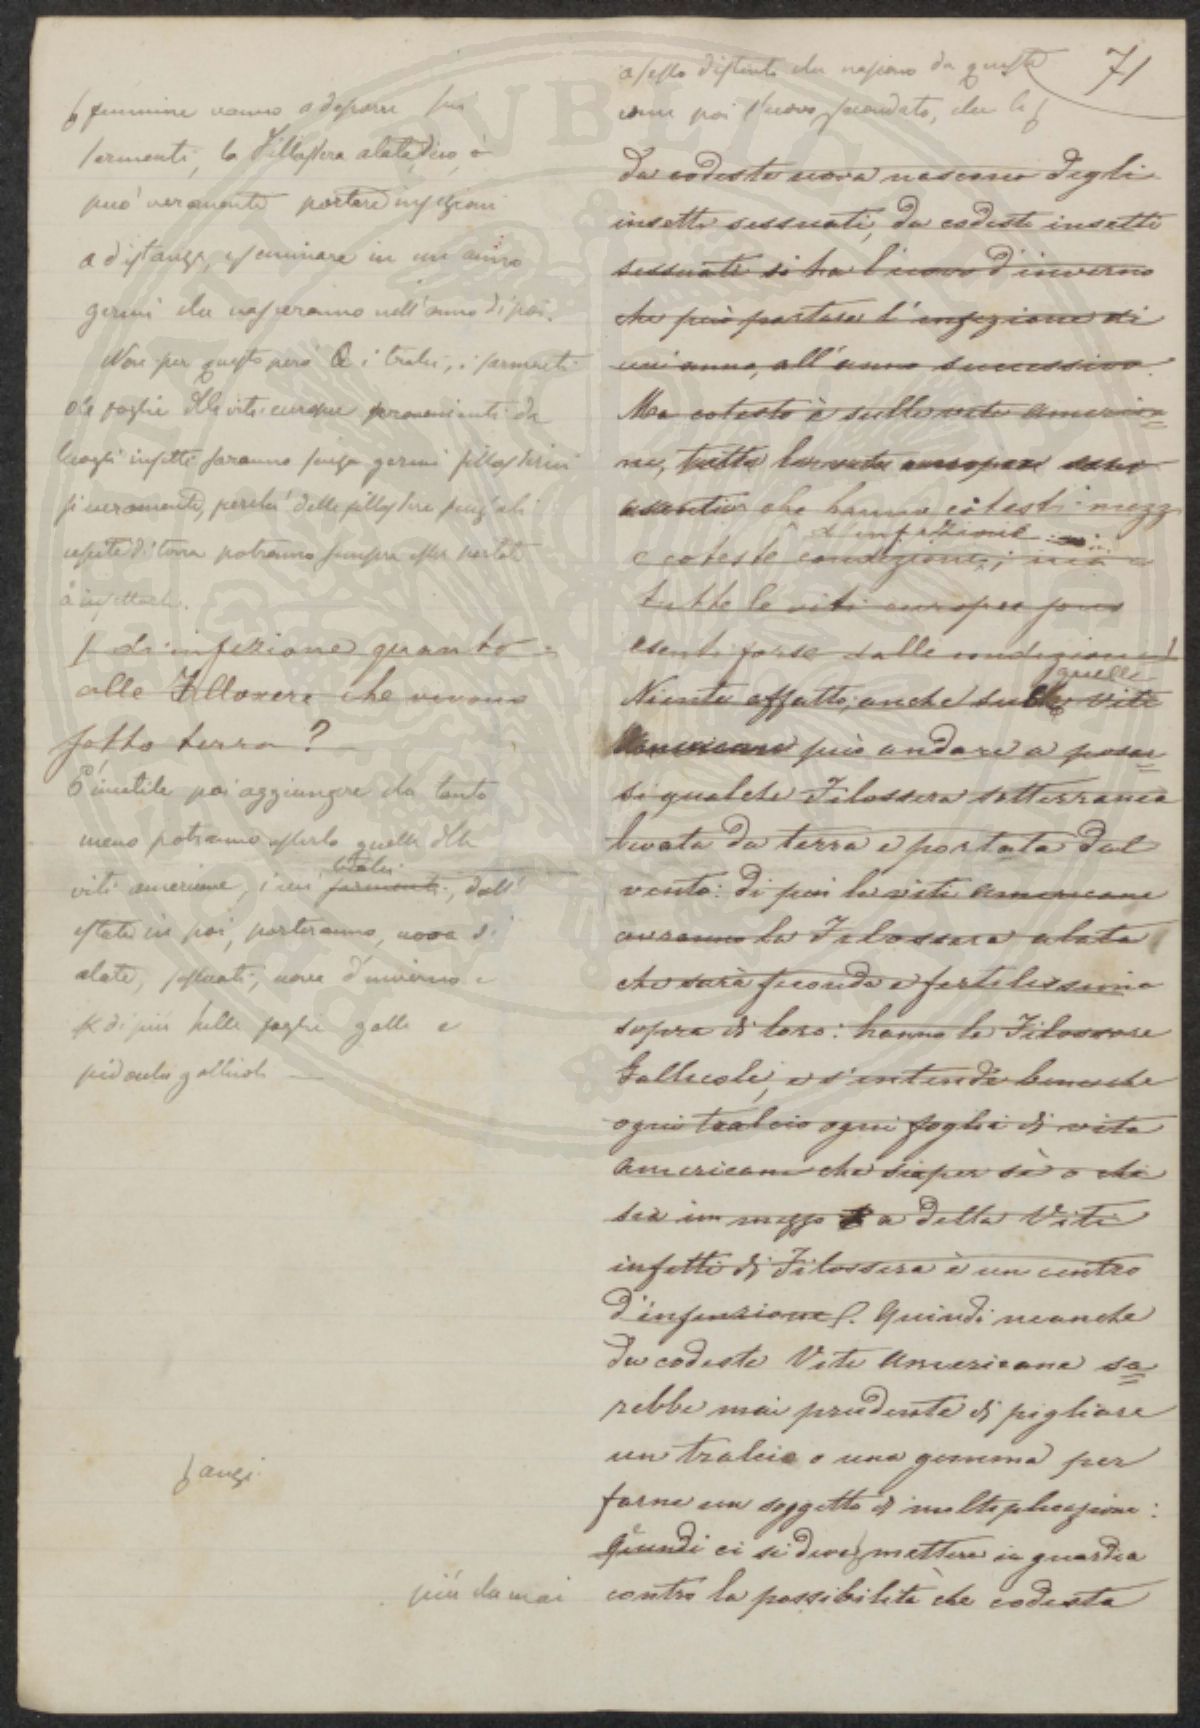 71
o sesso distinto che nascono da queste
come poi l'uovo fecondato, che le
da codeste uova nascono degli
insetti sessuati, da codesti insetti
sessuati si ha l'uovo d'inverno
che può portare l'infezione di
un anno, all'anno successivo.
Ma cotesto è sulle vite America
ne, tutte le vite europee sono
esenti che hanno cotesti mezz
d'infezione
e coteste condizioni; ma
tutte le viti europee sono
esenti forse dalle condizioni
quelle
Niente affatto; anche sulle vite
Americane può andare a posar
si qualche Filossera sotterranea
levata da terra e portata dal
vento: di più le viti americane
avranno la Filossera alata
che sarà feconda e fertilissima
sopra di loro: hanno le Filossere
Gallicole, e s'intende bene che
ogni tralcio ogni foglia di vite
americana che sia per sè o che
sia in mezzo a delle Viti
infette di Filossera è un centro
d'infezione. Quindi neanche
da codeste Vite Americane sa
rebbe mai prudente di pigliare
un tralcio o una gemma per
farne un soggetto di moltiplicazione:
Quindi ci si deve mettere in guardia
contro la possibilità che codesta
femmine vanno a deporre sui
sermenti, la Fillossera alata, dico,
può veramente portare infezioni
a distanza, e seminare in un anno
germi che nasceranno nell'anno di poi.
Non per questo però i tralci, i sarmenti
o le foglie delle viti europee provenienti da
luoghi infetti saranno senza germi fillosserici
sicuramente, perchè delle fillossere senz'ali
uscite di terra potranno sempre esser portate
a infettarli.
di infezione quanto
alle Fillossere che vivono
sotto terra?
È inutile poi aggiungere che tanto
meno potranno esserlo quelle delle
tralci
viti americane, i cui sarmenti, dall'
estate in poi, porteranno, uova di
alate, sessuati, uova d'inverno e
di più sulle foglie galle e
pidocchi gallicoli
anzi
più che mai